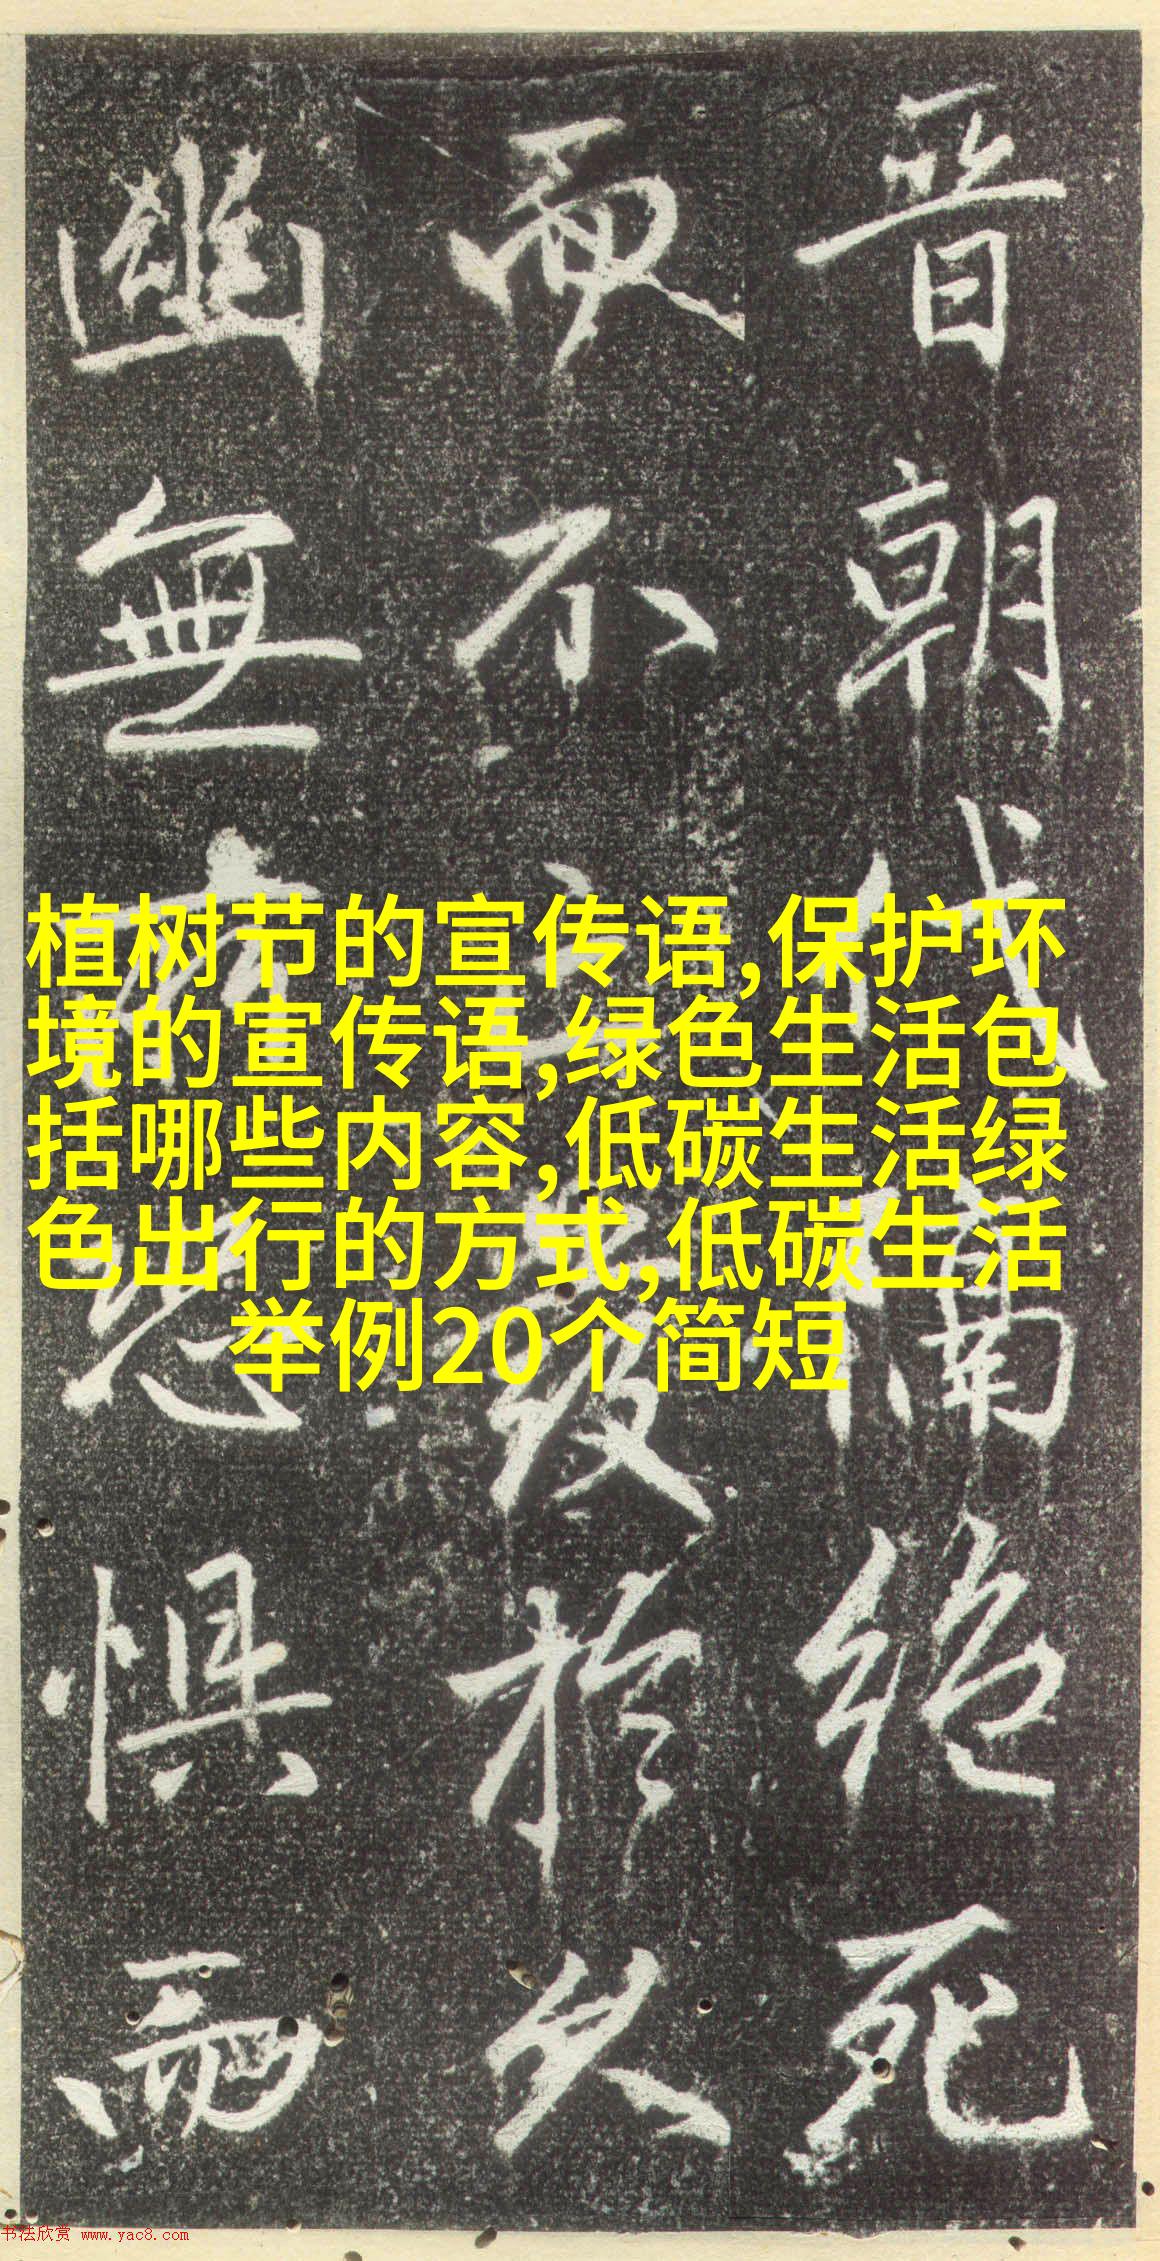 晋朝
隔絶死
而不
於久
幽無
懼而
植树节的宣传语,保护环
境的宣传语,绿色生活包
括哪些内容,低碳生活绿
色出行的方式,低碳生活
举例20个简短
书法欣赏 www.yac8.com